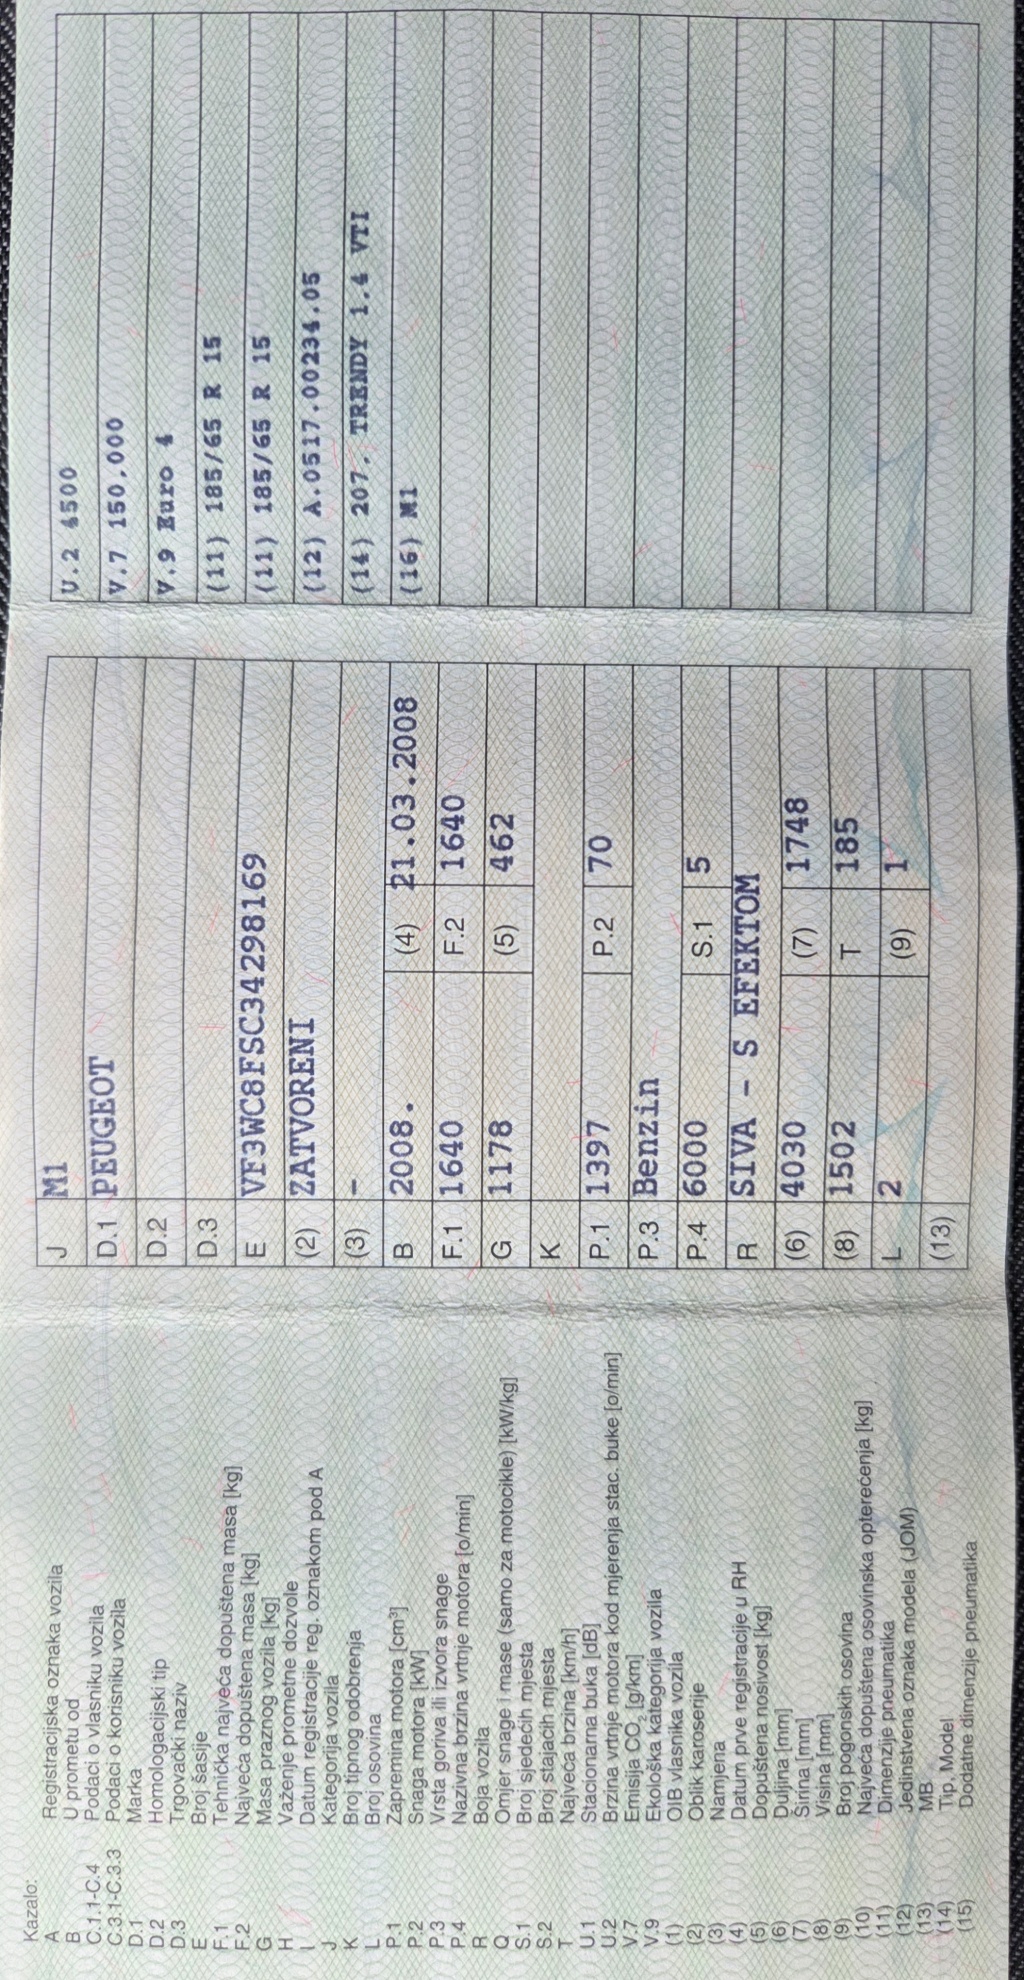 Kazalo:
A Registracijska oznaka vozila
B U prometu od
C.1.1-C.4 Podaci o vlasniku vozila
C.3.1-C.3.3 Podaci o korisniku vozila
D.1 Marka
D.2 Homologacijski tip
D.3 Trgovački naziv
E Broj šasije
F.1 Tehnička najveća dopuštena masa [kg]
F.2 Najveća dopuštena masa [kg]
G Masa praznog vozila [kg]
H Važenje prometne dozvole
I Datum registracije reg. oznakom pod A
J Kategorija vozila
K Broj tipnog odobrenja
L Broj osovina
P.1 Zapremina motora [cm³]
P.2 Snaga motora [kW]
P.3 Vrsta goriva ili izvora snage
P.4 Nazivna brzina vrtnje motora [o/min]
R Boja vozila
Q Omjer snage i mase (samo za motocikle) [kW/kg]
S.1 Broj sjedećih mjesta
S.2 Broj stajaćih mjesta
T Najveća brzina [km/h]
U.1 Stacionarna buka [dB]
U.2 Brzina vrtnje motora kod mjerenja stac. buke [o/min]
V.7 Emisija CO₂ [g/km]
V.9 Ekološka kategorija vozila
(1) OIB vlasnika vozila
(2) Oblik karoserije
(3) Namjena
(4) Datum prve registracije u RH
(5) Dopuštena nosivost [kg]
(6) Duljina [mm]
(7) Širina [mm]
(8) Visina [mm]
(9) Broj pogonskih osovina
(10) Najveća dopuštena osovinska opterećenja [kg]
(11) Dimenzije pneumatika
(12) Jedinstvena oznaka modela (JOM)
(13) MB
(14) Tip, Model
(15) Dodatne dimenzije pneumatika
J M1
D.1 PEUGEOT
D.2
D.3
E VF3WC8FSC34298169
(2) ZATVORENI
(3) -
B 2008. (4) 21.03.2008
F.1 1640 F.2 1640
G 1178 (5) 462
K
P.1 1397 P.2 70
P.3 Benzin
P.4 6000 S.1 5
R SIVA - S EFEKTOM
(6) 4030 (7) 1748
(8) 1502 T 185
L 2 (9) 1
(13)
U.2 4500
V.7 150,000
V.9 Euro 4
(11) 185/65 R 15
(11) 185/65 R 15
(12) A.0517.00234.05
(14) 207, TRENDY 1.4 VTI
(16) M1